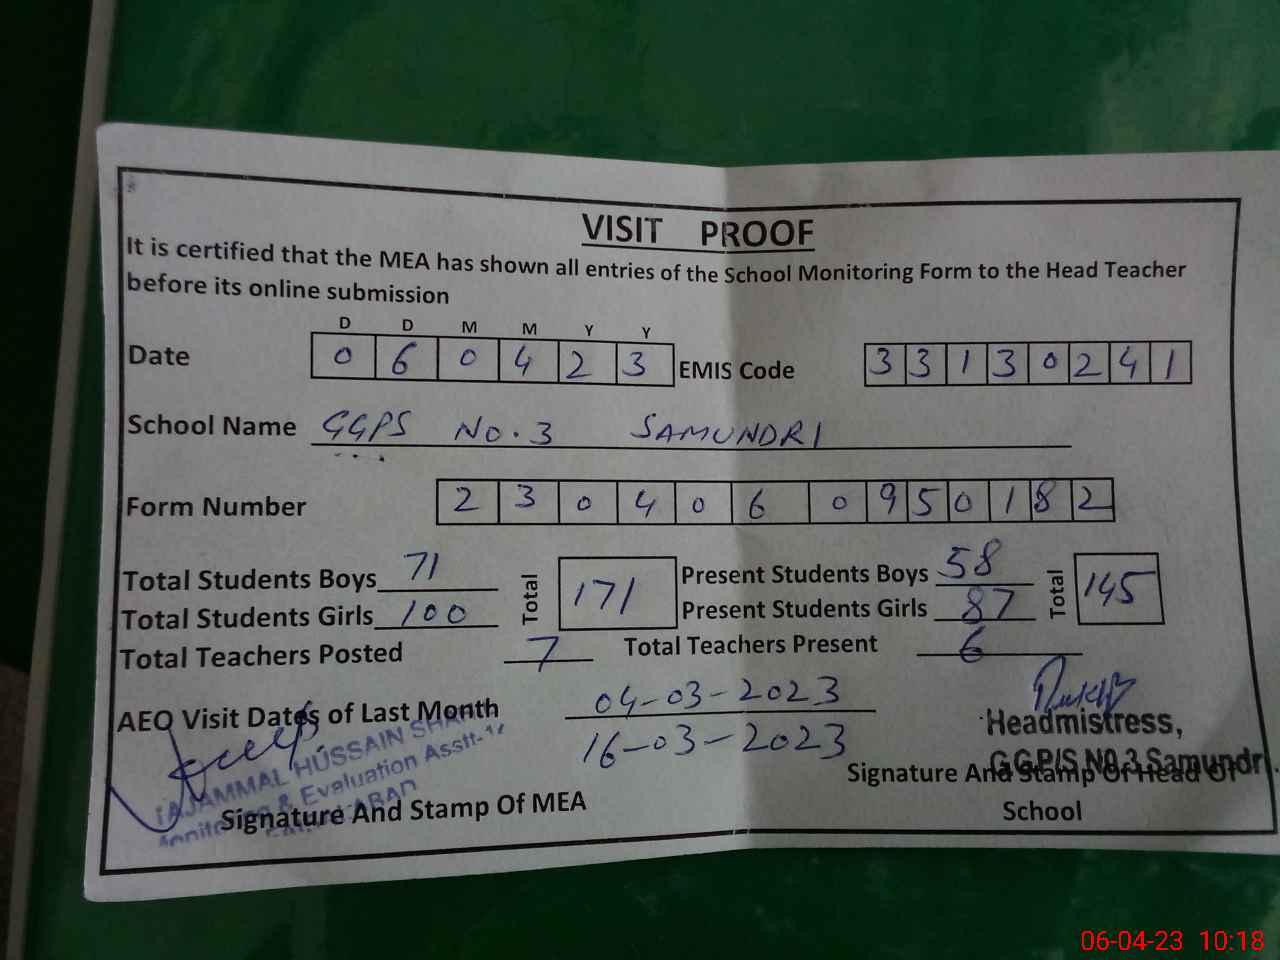 VISIT PROOF
It is certified that the MEA has shown all entries of the School Monitoring Form to the Head Teacher
before its online submission
D D M M Y Y
Date 0 6 0 4 2 3 EMIS Code 3 3 1 3 0 2 4 1
School Name GGPS No. 3 SAMUNDRI
Form Number 2 3 0 4 0 6 0 9 5 0 1 8 2
Total Students Boys 71 Total 171 Present Students Boys 58 Total 145
Total Students Girls 100 Present Students Girls 87
Total Teachers Posted 7 Total Teachers Present 6
AEO Visit Dates of Last Month 04-03-2023
16-03-2023
Headmistress,
G.G.P/S NO.3 Samundri.
TAJAMMAL HUSSAIN SHAH
& Evaluation Asstt-
Signature And Stamp Of MEA
Signature And Stamp Of Head Of
School
06-04-23 10:18